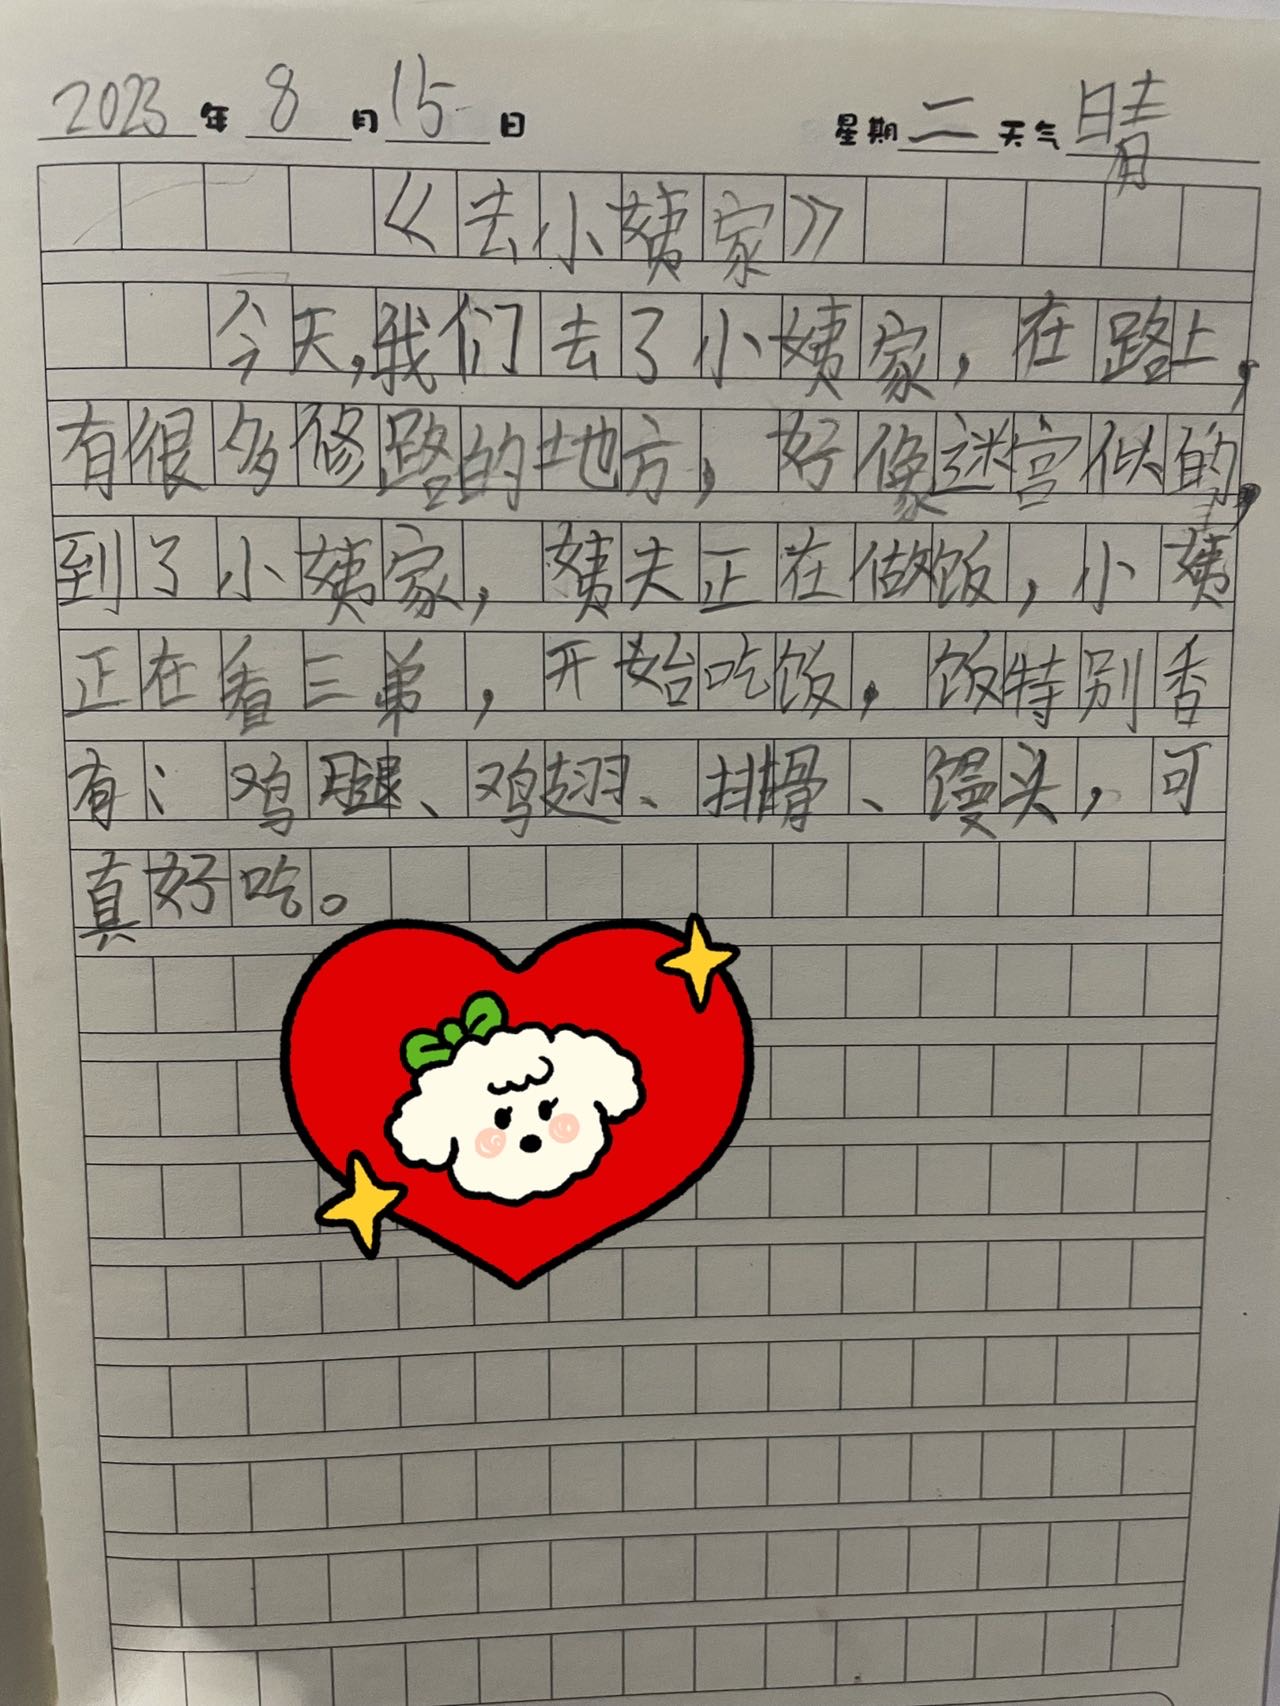 2023年8月15日 星期二天气晴
《去小姨家》
今天,我们去了小姨家,在路上,
有很多修路的地方,好像迷宫似的,
到了小姨家,姨夫正在做饭,小姨
正在看三弟,开始吃饭,饭特别香
有:鸡腿、鸡翅、排骨、馒头,可
真好吃。